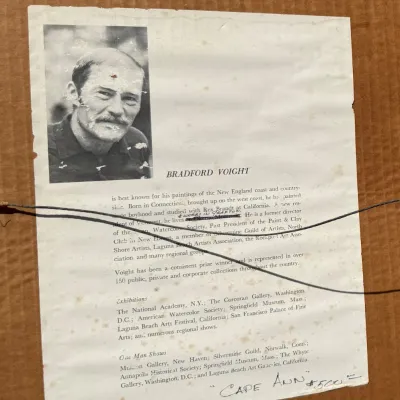 BRADFORD VOIGHT
is best known for his paintings of the New England coast and country-
side. Born in Connecticut, brought up on the west coast, he
boyhood and studied with Rex Brandt in California.
He is a former director
of the Watercolor Society, Past President of the Paint & Clay
Club in New Haven, a member of Silvermine Guild of Artists, North
Shore Artists, Laguna Beach Artists Association, the Art Asso-
ciation and many regional
Voight has been a consistent prize winner and is represented in over
150 public, private and corporate collections throughout the country.
Exhibitions:
The National Academy, N.Y., The Corcoran Gallery, Washington,
D.C.; American Watercolor Society; Springfield Museum, Mass.;
Laguna Beach Arts Festival, California; San Francisco Palace of Fine
Arts; and numerous regional shows.
One Man Shows:
Munson Gallery, New Haven; Silvermine Guild, Norwalk, Conn.;
Annapolis Historical Society; Springfield Museum, Mass.; The Whyte
Gallery, Washington, D.C.; and Laguna Beach Art Galleries, California.
"CAPE ANN"